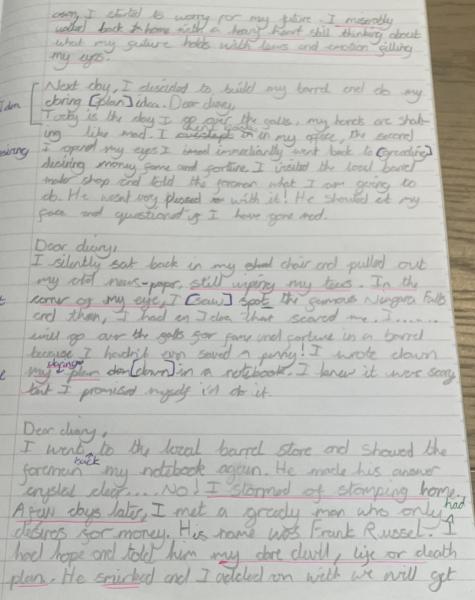 away, I started to worry for my future. I miserably
walked back home with a heavy heart still thinking about
what my future holds with tears and emotion filling
my eyes.
Next day, I decided to build my barrel and do my
daring [plan] idea. Dear diary,
Idea
Today is the day I go over the falls, my hands are shak-
ing like mad. I went back in my office, the second
I opend my eyes I immediately went back to [greading]
desiring
desiring money fame and fortune. I visited the local barrel
maker shop and told the foreman what I am going to
do. He wasnt very pleased with it! He shouted at my
face and questioned if I have gone mad.
Dear diary,
I silently sat back in my chair and pulled out
my old news-paper, still wiping my tears. In the
corner of my eye, I [saw] spot the famous Niagara Falls
and then, I had an Idea that scared me. I......
will go over the falls for fame and fortune in a barrel
because I hadn't even saved a penny! I wrote down
my daring plan [down] in a notebook. I knew it was scary
but I promised myself i'd do it.
Dear diary,
I went back to the local barrel store and showed the
foreman my notebook again. He made his answer
crystal clear....No! I stormed of stomping home.
A few days later, I met a greedy man who only had
desires for money. His name was Frank Russel. I
had hope and told him my dare devil, life or death
plan. He smirked and I added on with we will get